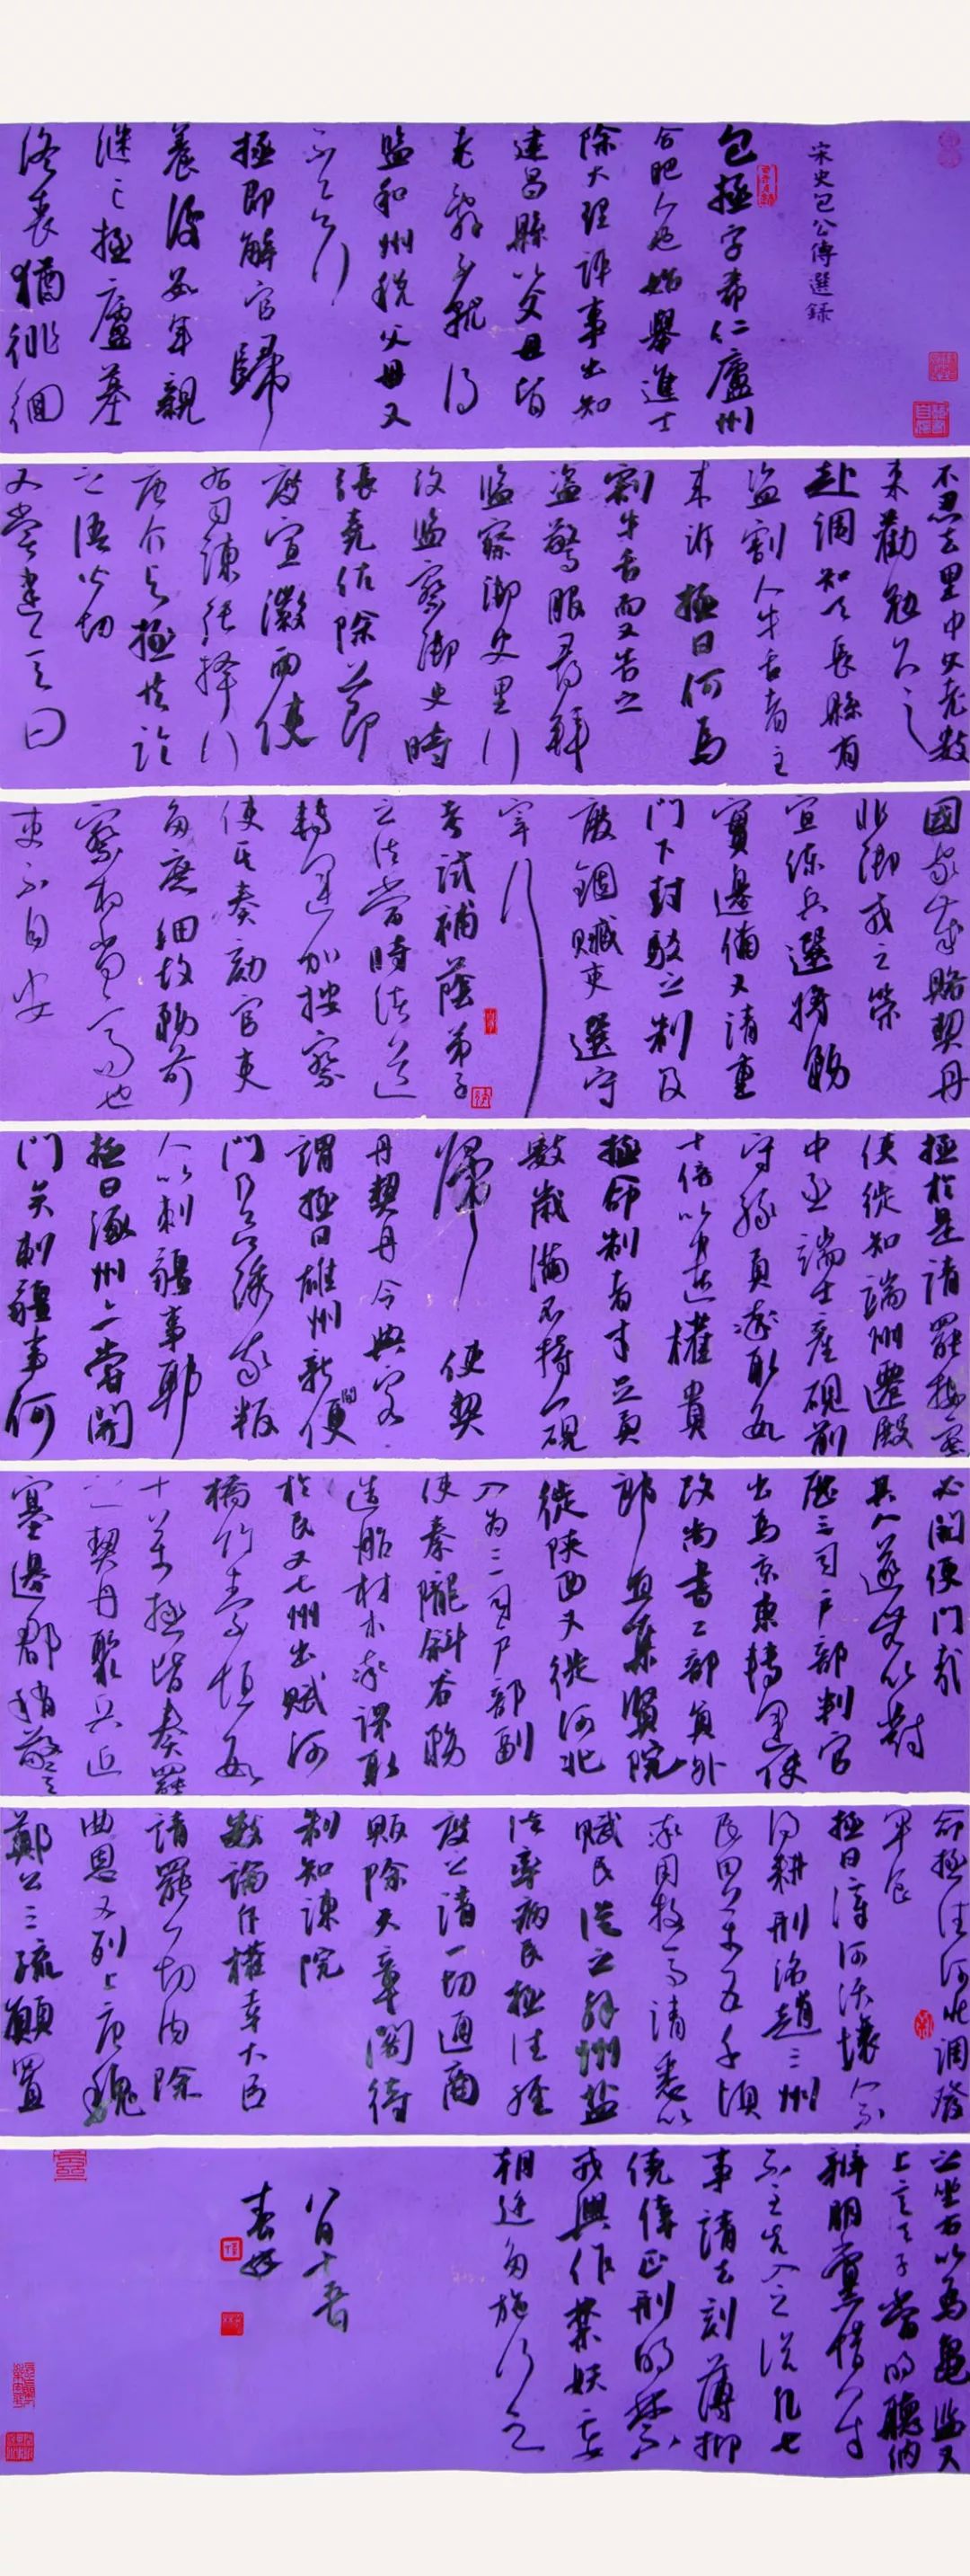 宋史包公傳選錄
包拯字希仁廬州
合肥人也始舉進士
除大理評事出知
建昌縣以父母皆
老辭不就得
監和州稅父母又
不欲行
拯即解官歸
養後數年親
繼亡拯廬墓
終喪猶徘徊
不忍去里中父老數
來勸勉久之
赴調知天長縣有
盜割人牛舌者主
來訴拯曰何為
割牛舌而又告之
盜驚服尋拜
監察御史里行
改監察御史時
張堯佐除節
度宣徽兩使
右司諫張擇行
唐介與拯共論
之語甚切
又嘗建言曰
國家歲賂契丹
非御戎之策
宜練兵選將務
實邊備又請重
門下封駁之制及
廢錮贓吏選守
宰行
考試補蔭弟子
之法當時諸道
轉運加按察
使其奏劾官吏
多摭細故務苛
察相高尚也
吏不自安
拯於是請罷按察
使徙知端州遷殿
中丞端土產硯前
守緣貢率取數
十倍以遺權貴
拯命制者才足貢
數歲滿不持一硯
歸 使契
丹契丹令典客
謂拯曰雄州新開便
門乃欲誘我叛
人以刺疆事耶
拯曰涿州亦嘗開
門矣刺疆事何
必開便門哉
其人遂無以對
歷三司戶部判官
出為京東轉運使
改尚書工部員外
郎直集賢院
徙陝西又徙河北
入為三司戶部副
使秦隴斜谷務
造船材木率課取
於民又七州出賦河
橋竹索恆數
十萬拯皆奏罷
之契丹聚兵近
塞邊郡稍警
命拯往河北調發
軍食
拯曰漳河沃壤人不
得耕邢洺趙三州
民田萬五千頃
率用牧馬請悉以
賦民從之解州鹽
法率病民拯往經
度之請一切通商
販除天章閣待
制知諫院
數論斥權幸大臣
請罷一切內除
曲恩又列上唐魏
鄭公三疏願置
之坐右以為龜鑑又
上言天子當明聽納
辨朋黨惜人才
不主先入之說凡七
事請去刻薄抑
僥倖正刑明禁
戒興作禁妖妄
朝廷多施行之